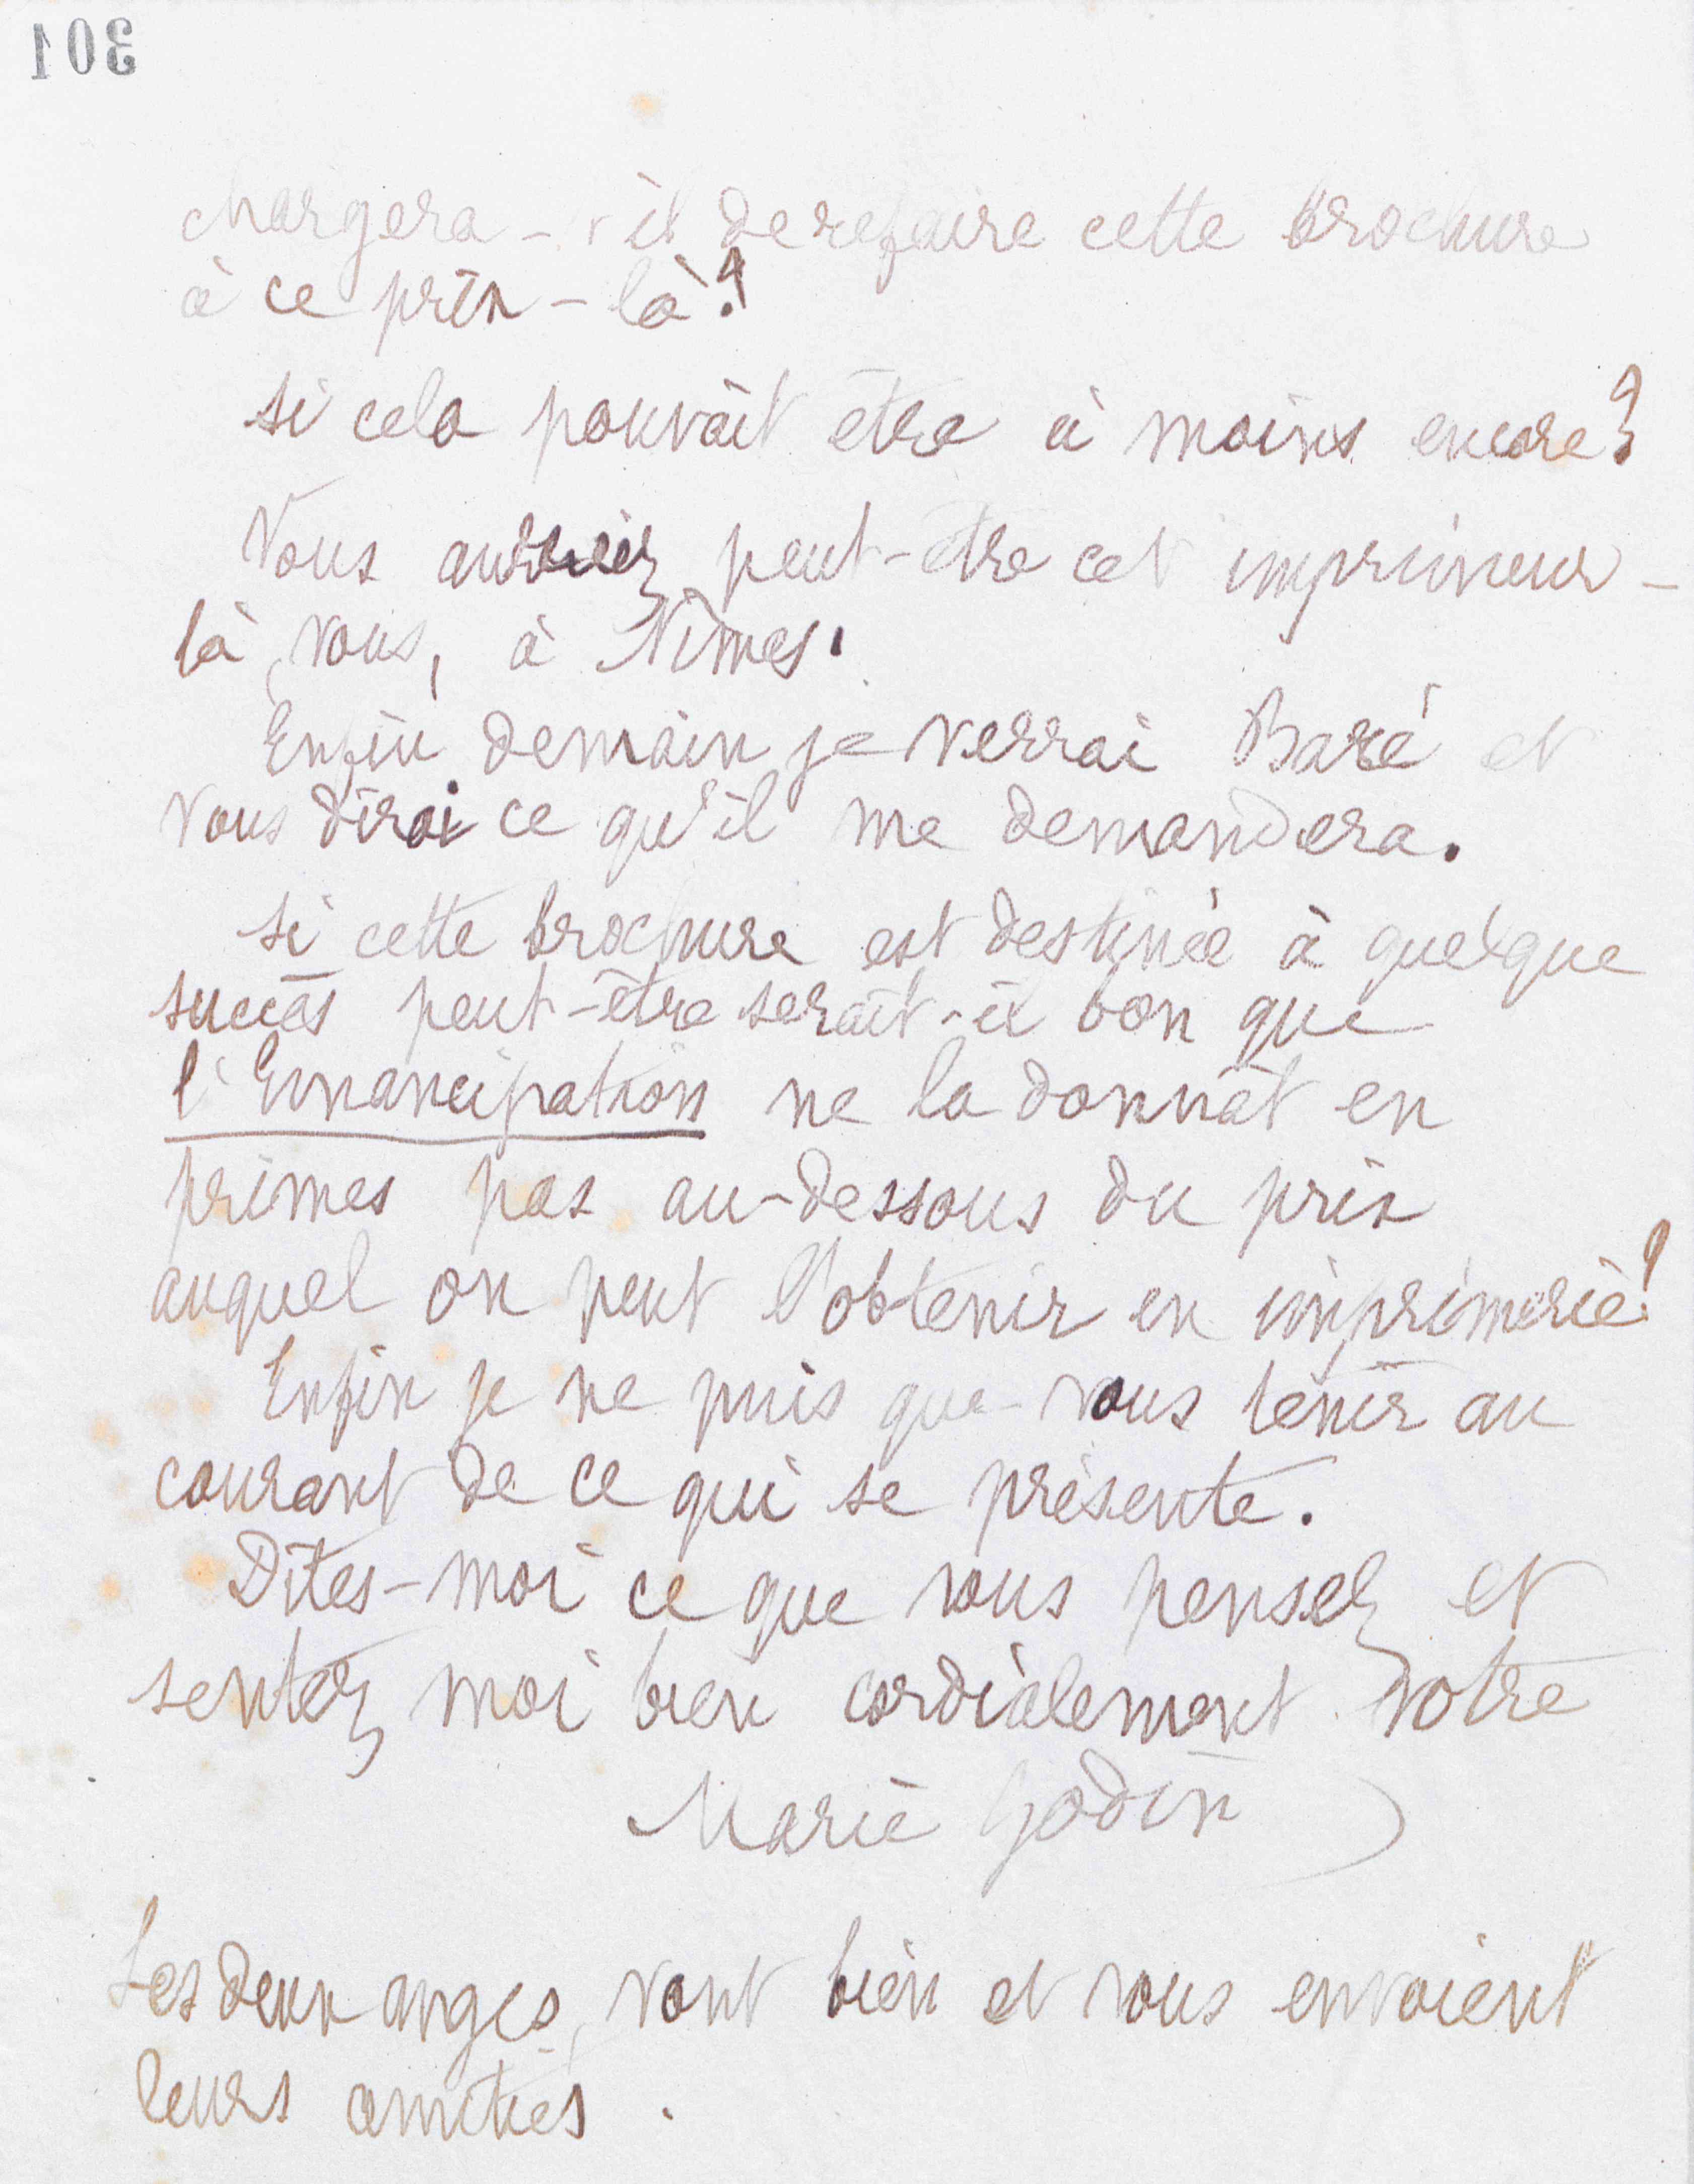 301
chargera-t-il de refaire cette brochure
à ce prix-là?
Si cela pouvait être à moins encore?
Vous auriez peut-être cet imprimeur-
là, vous, à Nîmes.
Enfin demain je verrai Baré et
vous dirai ce qu'il me demandera.
Si cette brochure est destinée à quelque
succès peut-être serait-il bon que
l'Emancipation ne la donnât en
primes pas au-dessous du prix
auquel on peut l'obtenir en imprimerie?
Enfin je ne puis que vous tenir au
courant de ce qui se présente.
Dites-moi ce que vous pensez et
sentez moi bien cordialement votre
Marie Godin
Les deux anges vont bien et vous envoient
leurs amitiés.